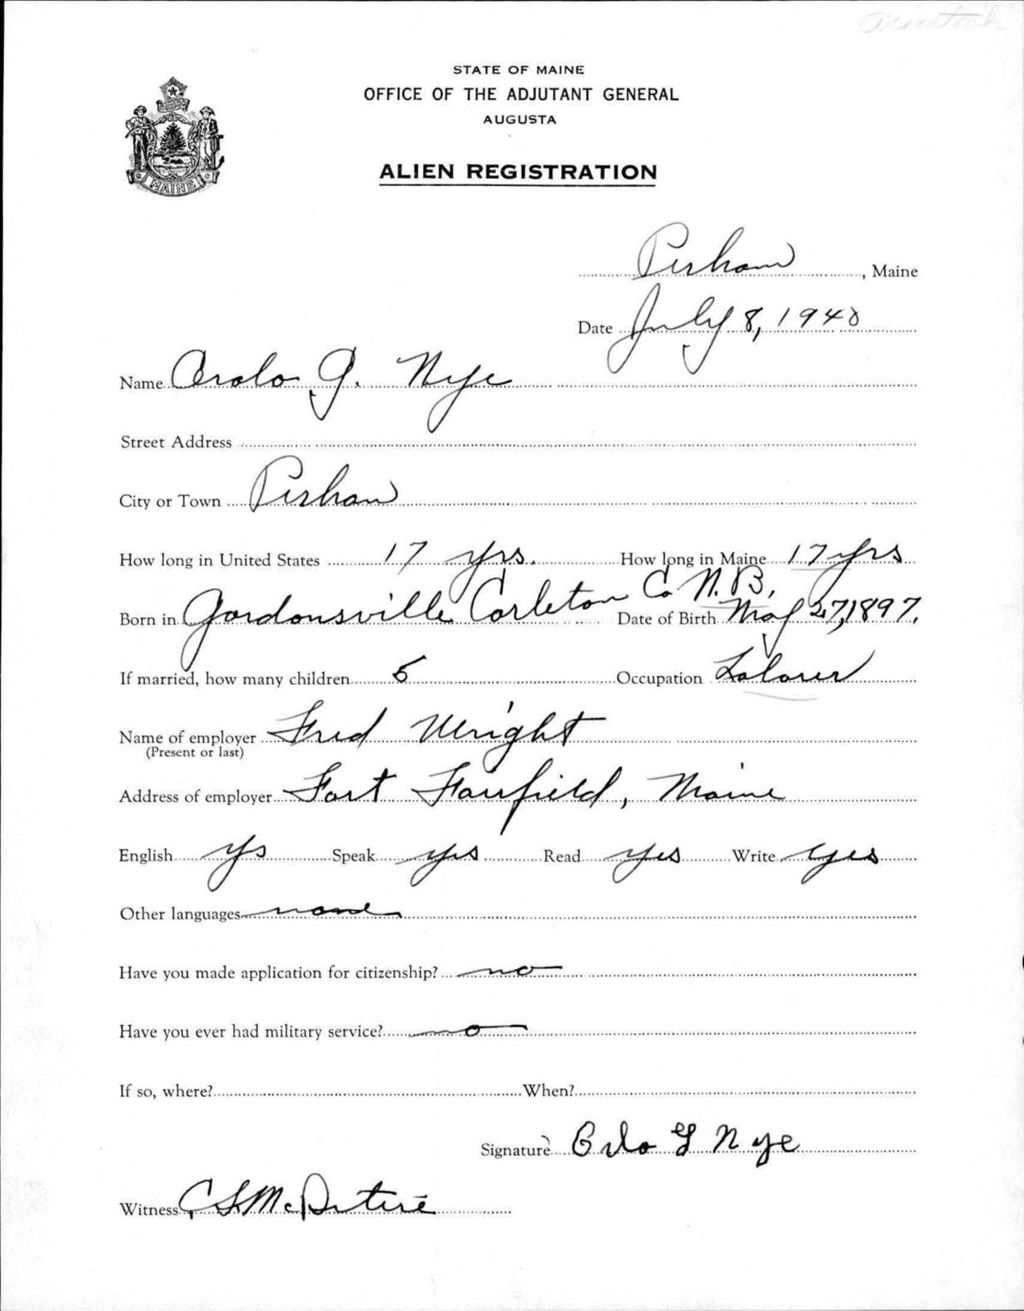 Aroostook
STATE OF MAINE
OFFICE OF THE ADJUTANT GENERAL
AUGUSTA
ALIEN REGISTRATION
MAINE
Perham, Maine
Date July 8, 1940
Name Arolo G. Nye
Street Address
City or Town Perham
How long in United States 17 yrs. How long in Maine 17 yrs
Born in Gordonsville Carleton Co N.B. Date of Birth May 27, 1897.
If married, how many children 5 Occupation Laborer
Name of employer Fred Wright
(Present or last)
Address of employer Fort Fairfield, Maine
English ys Speak yes Read yes Write yes
Other languages none
Have you made application for citizenship? no
Have you ever had military service? no
If so, where? When?
Signature Orlo G Nye
Witness C L McIntire